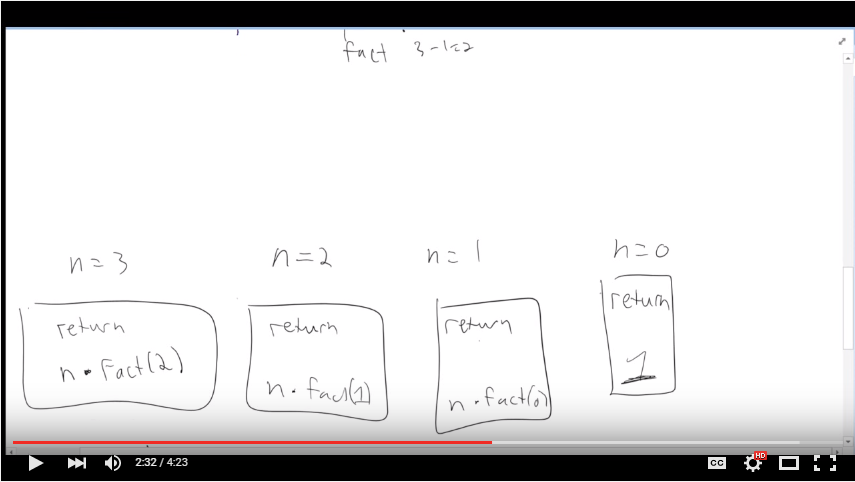 fact 3-1=2
n=3
n=2
n=1
n=0
return
n·Fact(2)
return
n·fact(1)
return
n·fact(0)
return
1
2:32 / 4:23
CC
HD